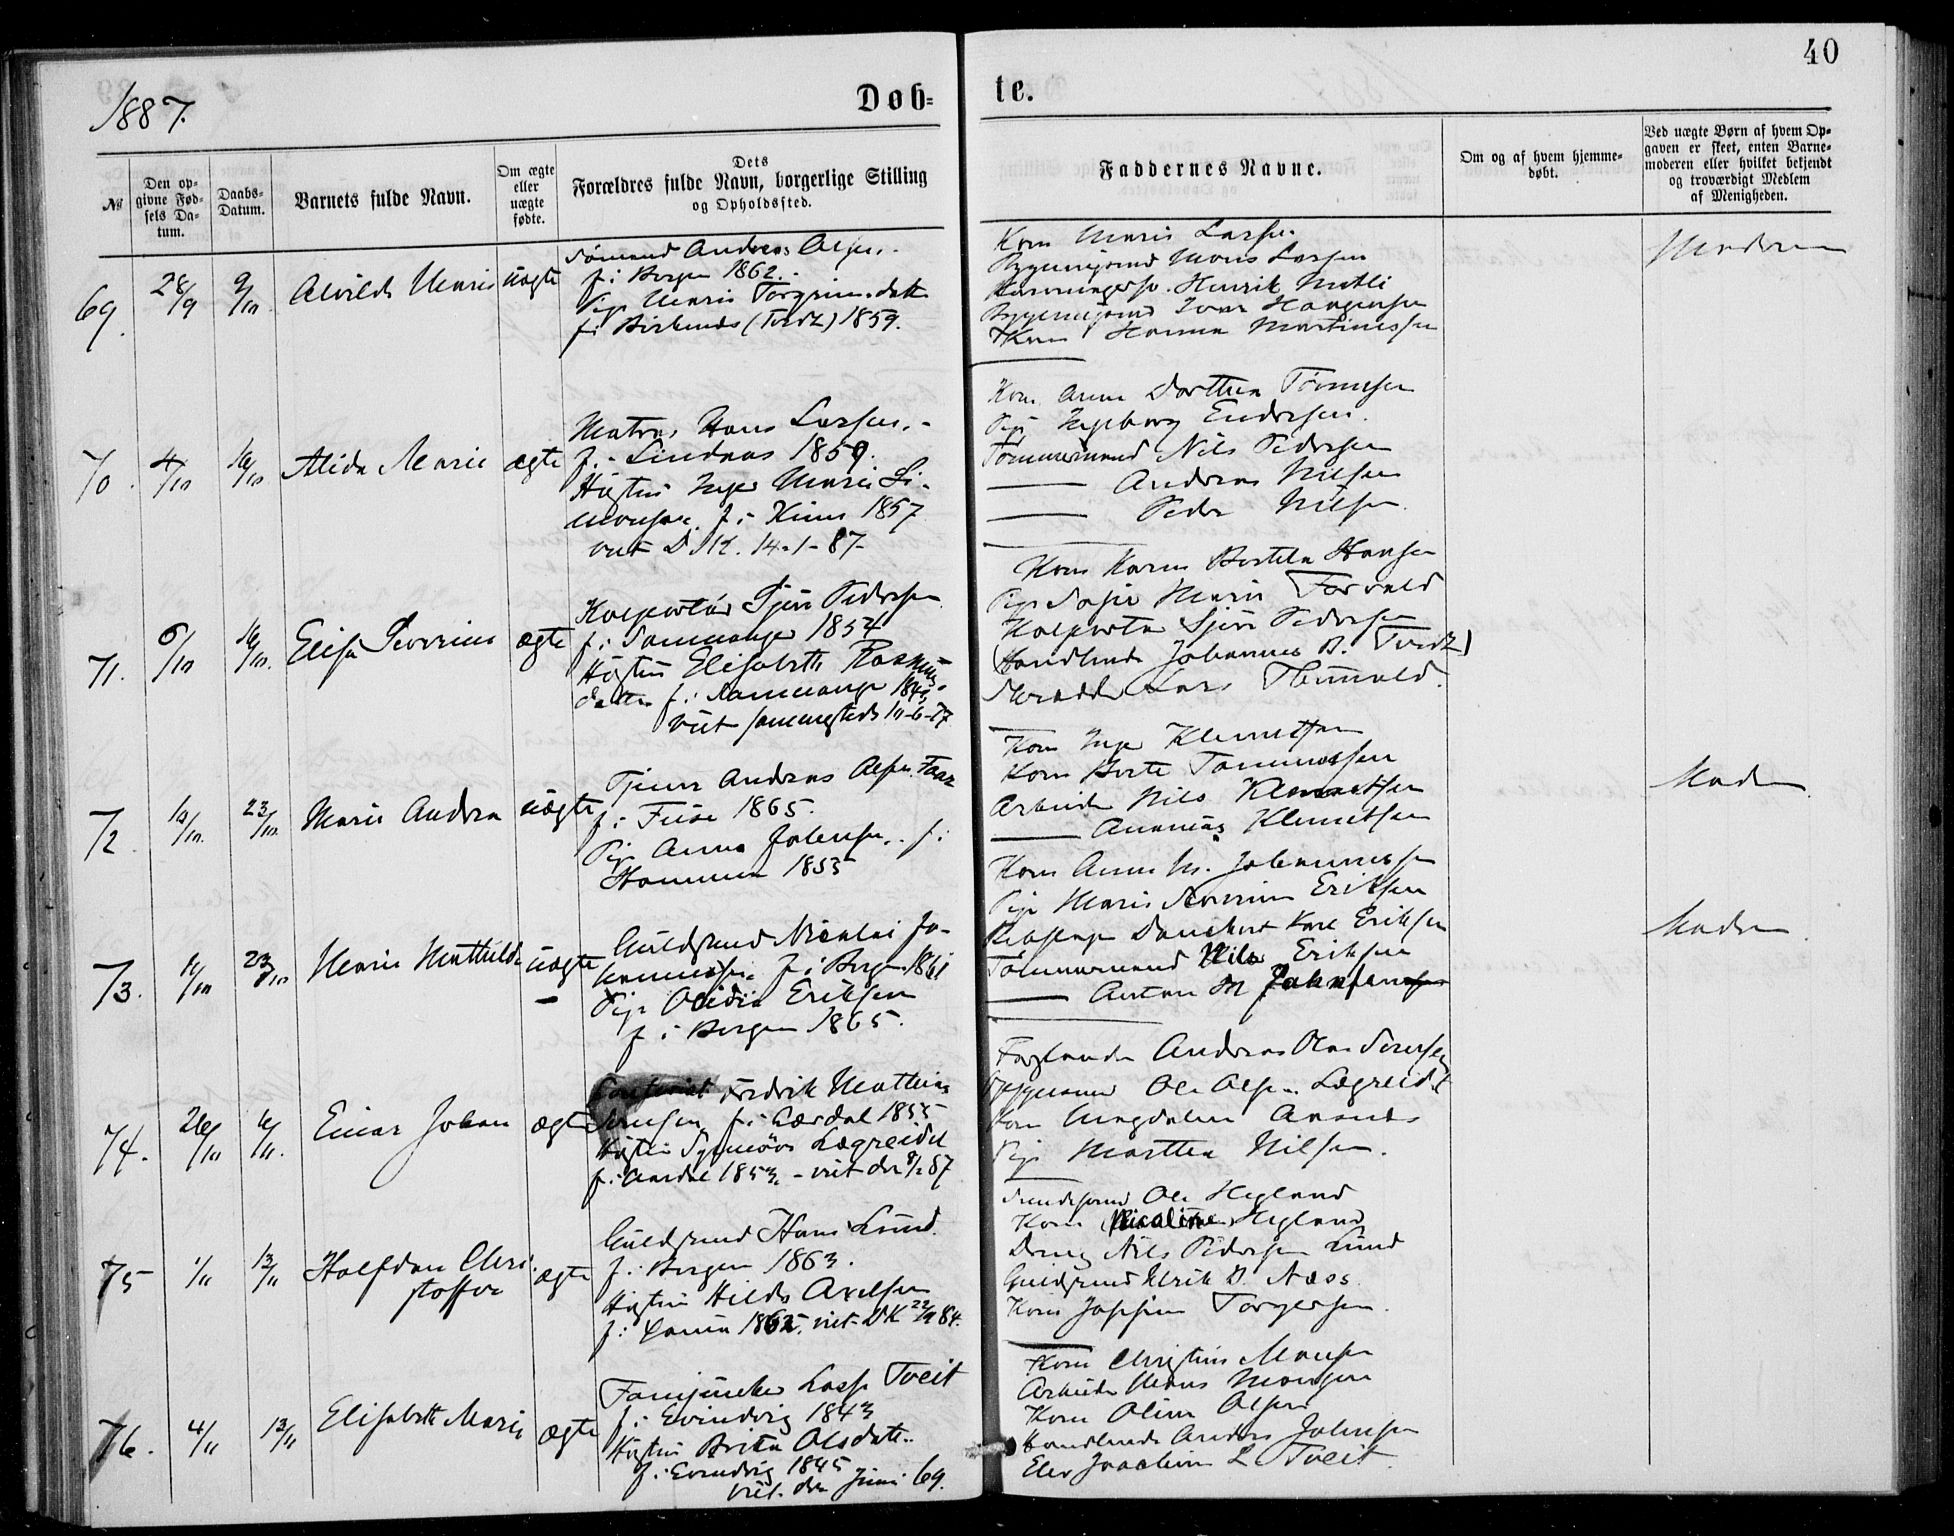 40
1887.
Døb-
te.
№
Den op-
givne Fød-
sels Da-
tum.
Daabs-
Datum.
Barnets fulde Navn.
Om ægte
eller
uægte
fødte.
Dets
Forældres fulde Navn, borgerlige Stilling
og Opholdssted.
Faddernes Navne.
Om og af hvem hjemme-
døbt.
Ved uægte Børn af hvem Op-
gaven er skeet, enten Barne-
moderen eller hvilket bekjendt
og troværdigt Medlem
af Menigheden.
69.
28/9
9/10
Alvilde Marie
uægte
Sømand Andreas Olsen.
f. i Bergen 1862.
Pige Marie Torgrimsdatter
f. i Birkeland (Tveit) 1859.
Kone Marie Larsen
Bryggemand Mons Larsen
Henrik
Bryggemand Iver Haagensen
Kone Hanna Martinussen
Moderen
70.
4/10
16/10
Alida Marie
ægte
Matros Hans Larsen.
f. i Lindaas 1859.
Hustru Inger Marie Si-
monsen f. i Kinn 1857
viet D.K. 14-1-87
Kone Anne Dorthea Tønnesen
Pige Ingeborg Endresen
Tømmermand Nils Pedersen
Andreas Nilsen
Peder Nilsen
71.
6/10
16/10.
Elisa Severine
ægte
Kolportør Sjur Pedersen
f. i Samnanger 1854
Hustru Elisabeth Rasmus-
datter f. i Samnanger
viet sammesteds 10-6-77
Kone Karen Hansen
Pige Sofie Marie
Kolportør Sjur Pedersen
Handlende Johannes B. Tveit
Skrædder Lars
72
10/10.
23/10.
Marie Andrea
uægte
Tjener Andreas Olsen
f. i Fuse 1865.
Pige Anna Johnsen. f. i
Hammer 1855
Kone Inger Klemetsen
Kone Berte Tommesen
Arbeider Nils Klemetsen
Ananias Klemetsen
Moderen
73.
11/10
23/10
Marie Mathilde
uægte
Guldsmed Nicolai Jo-
hannesen f. i Bergen 1861
Pige Olidia Eriksen
f. i Bergen 1865.
Kone Anne M. Johannesen
Pige Marie Severine Eriksen
Danckert Karl Eriksen
Tømmermand Nils Eriksen
Anton M Johnsen
Moderen
74.
26/10
6/11.
Einar Johan
ægte
Fredrik Mathias
Sensen f. i Lærdal 1855
Hustru Synnøve Lægreidet
f. i Aardal 1853. - viet den 8/2 87
Andreas Olai Sensen
Ole Olsen Lægreidet
Kone Magdalene
Pige Marthea Nilsen.
75
1/11
13/11
Halfdan Chri-
stoffer
ægte
Guldsmed Hans Lund.
f. i Bergen 1863.
Hustru Hilda Axelsen
viet DK 84.
Ole Hegland
Kone Nicoline Hegland
Dreng Nils Pedersen Lund
Guldsmed Ulrik D. Næss.
Kone Josefine Torgersen.
76.
4/11
13/11
Elisabeth Marie
ægte
Lasse Tveit
f. i Evindvig 1843
Hustru Brita Olsdatter.
f. i Evindvig 1845
viet den Juni 69.
Kone Christine Monsen
Arbeider Mons Monsen
Kone Oline Olsen
Handlende Anders Johnsen
Elev Joachim L Tveit